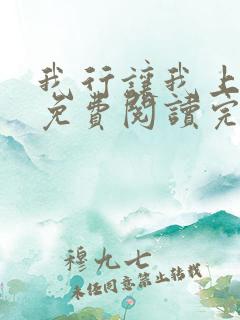 我行讓我上
免費閱讀完
穆九七
未经同意禁止转载